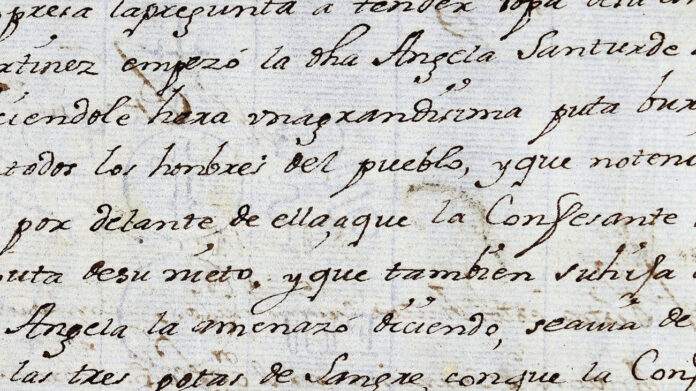 presa la pregunta a tender ropa
rtinez empezó la dha Angela Santurde
ciendole hera vna grandisima puta bur
todos los hombres del pueblo, y que no teni
por delante de ella, a que la Confesante
puta de su nieto, y que tambien su hija
Angela la amenazó diciendo, se avia de
las tres potas de Sangre, con que la Con